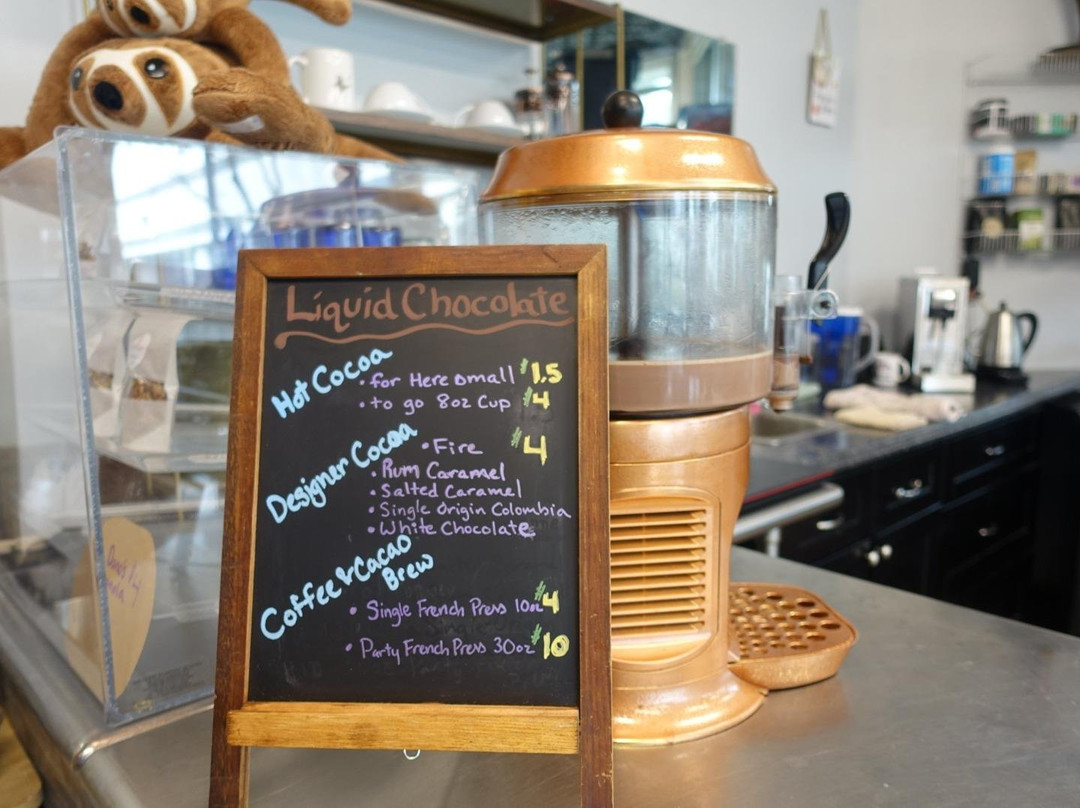 Liquid Chocolate
Hot Cocoa
• for Here small $1.5
• to go 8oz Cup $4
Designer Cocoa
• Fire $4
• Rum Caramel
• Salted Caramel
• Single Origin Colombia
• White Chocolate
Coffee & Cacao
Brew
• Single French Press 10oz $4
• Party French Press 30oz $10